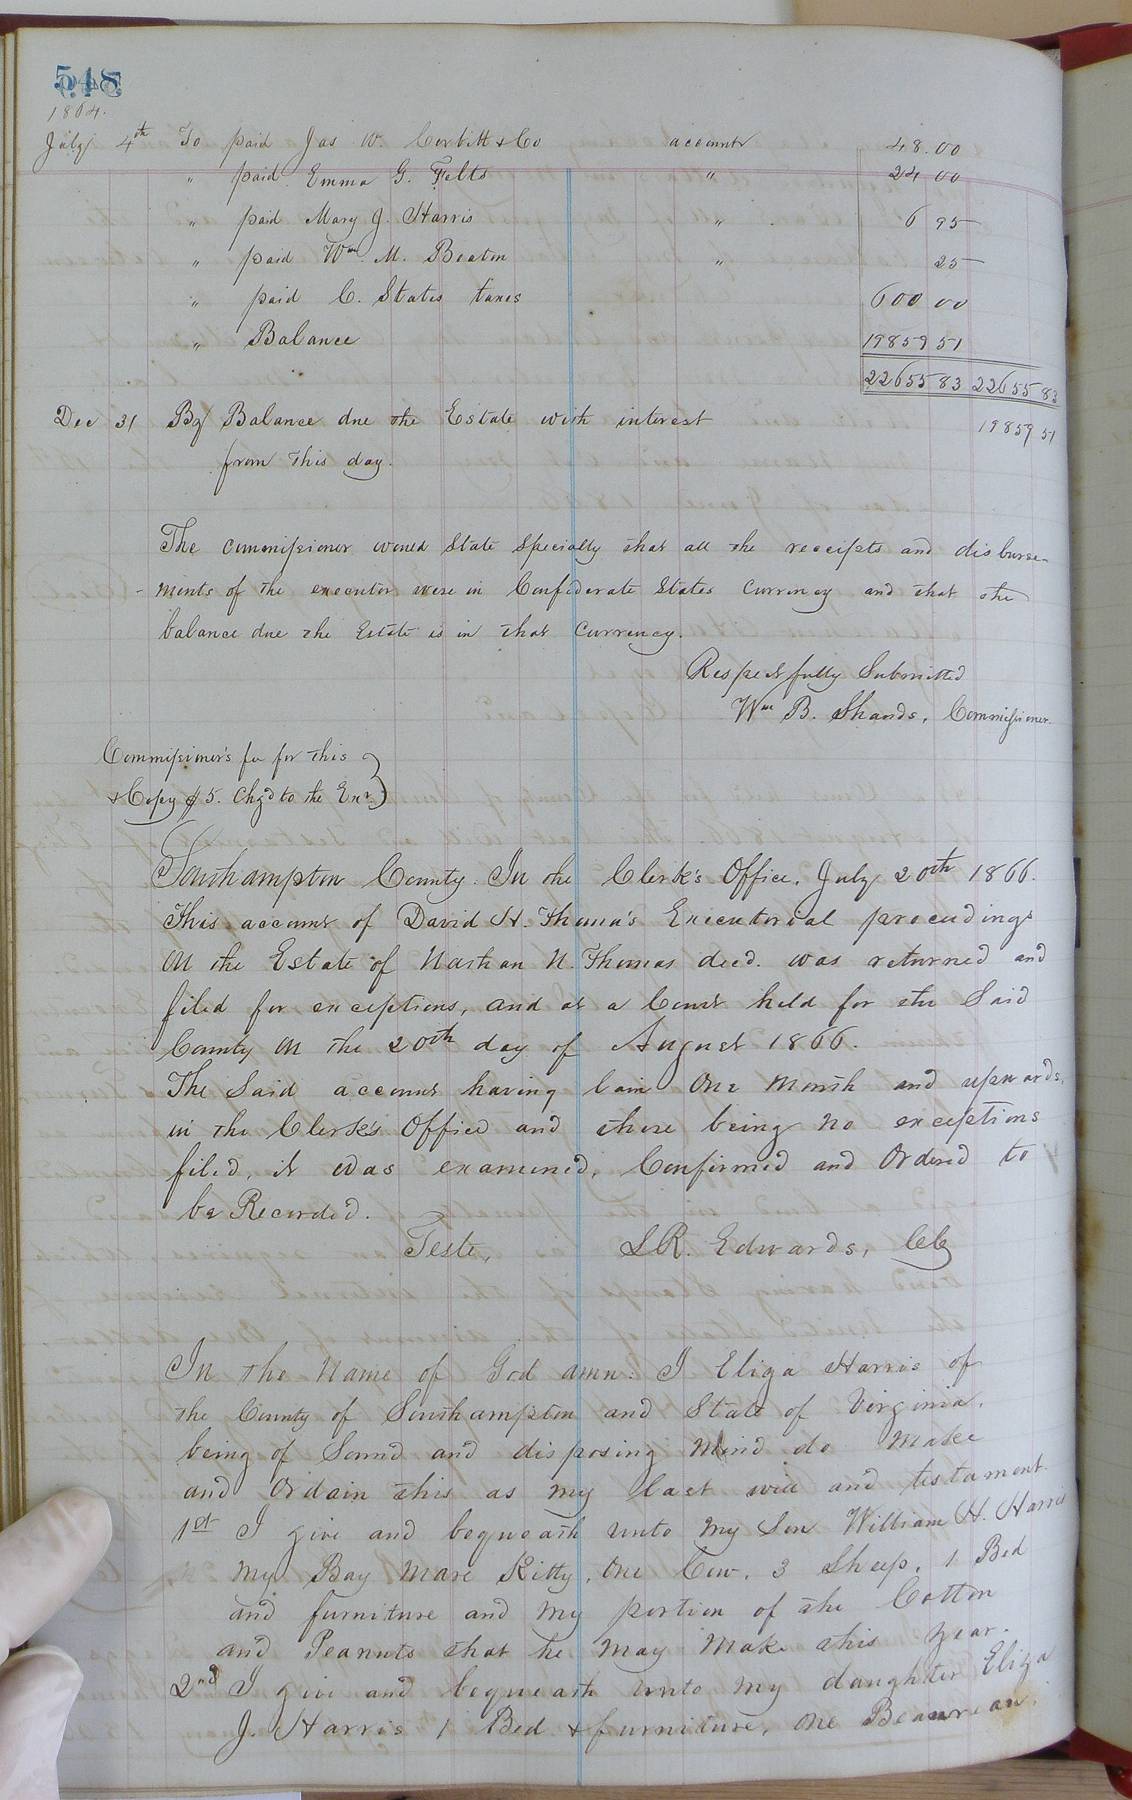 548
1864.
July 4th To paid Jas W. Corbitt & Co account 48.00
" paid Emma G. Felts " 24 00
" paid Mary J. Harris " 6 95
" paid Wm. M. Beaton " 25
" paid C. States taxes 600 00
" Balance 19859 51
22655 83 22655 83
Dec 31 By Balance due the Estate with interest 19859 51
from this day.
The commissioner would State Specially that all the receipts and disburse-
ments of the executor were in Confederate States Currency and that the
balance due the Estate is in that Currency.
Respectfully Submitted
Wm B. Shands, Commissioner.
Commissioner's fee for this
& Copy $5. Chgd to the Exr.
Southampton County. In the Clerk's Office, July 20th 1866.
This account of David H. Thomas's Executorial proceedings
on the Estate of Nathan N. Thomas decd. was returned and
filed for exceptions, and at a Court held for the Said
County on the 20th day of August 1866.
The Said account having lain one month and upwards,
in the Clerk's Office and there being no exceptions
filed, it was examined, Confirmed and Ordered to
be Recorded.
Teste, L R. Edwards, CC
In the Name of God amn: I Eliza Harris of
the County of Southampton and State of Virginia,
being of Sound and disposing mind do make
and Ordain this as my last will and testament.
1st I give and bequeath unto my Son William H. Harris
my Bay mare Kitty, One Cow, 3 Sheep, 1 Bed
and furniture and my portion of the Cotton
and Peanuts that he may make this year.
2nd I give and bequeath unto my daughter Eliza
J. Harris 1 Bed & furniture, one Beaureau,